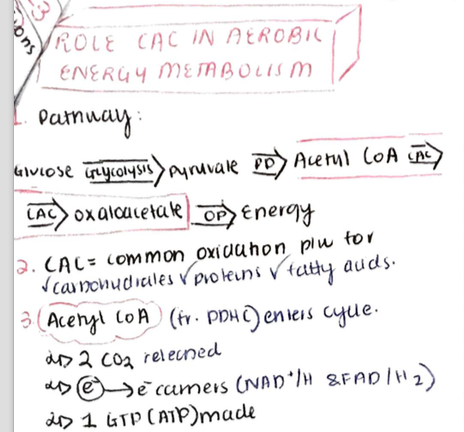 3
ons
ROLE CAC IN AEROBIC
ENERGY METABOLISM
1. Pathway:
Glucose Glycolysis Pyruvate PD Acetyl CoA CAC
CAC oxaloacetate OP Energy
2. CAC = common oxidation p/w for
√carbohydrates √proteins √fatty acids.
3. Acetyl CoA (fr. PDHC) enters cycle.
2 CO2 released
e⁻ → e⁻ carriers (NAD⁺/H & FAD/H2)
1 GTP (ATP) made